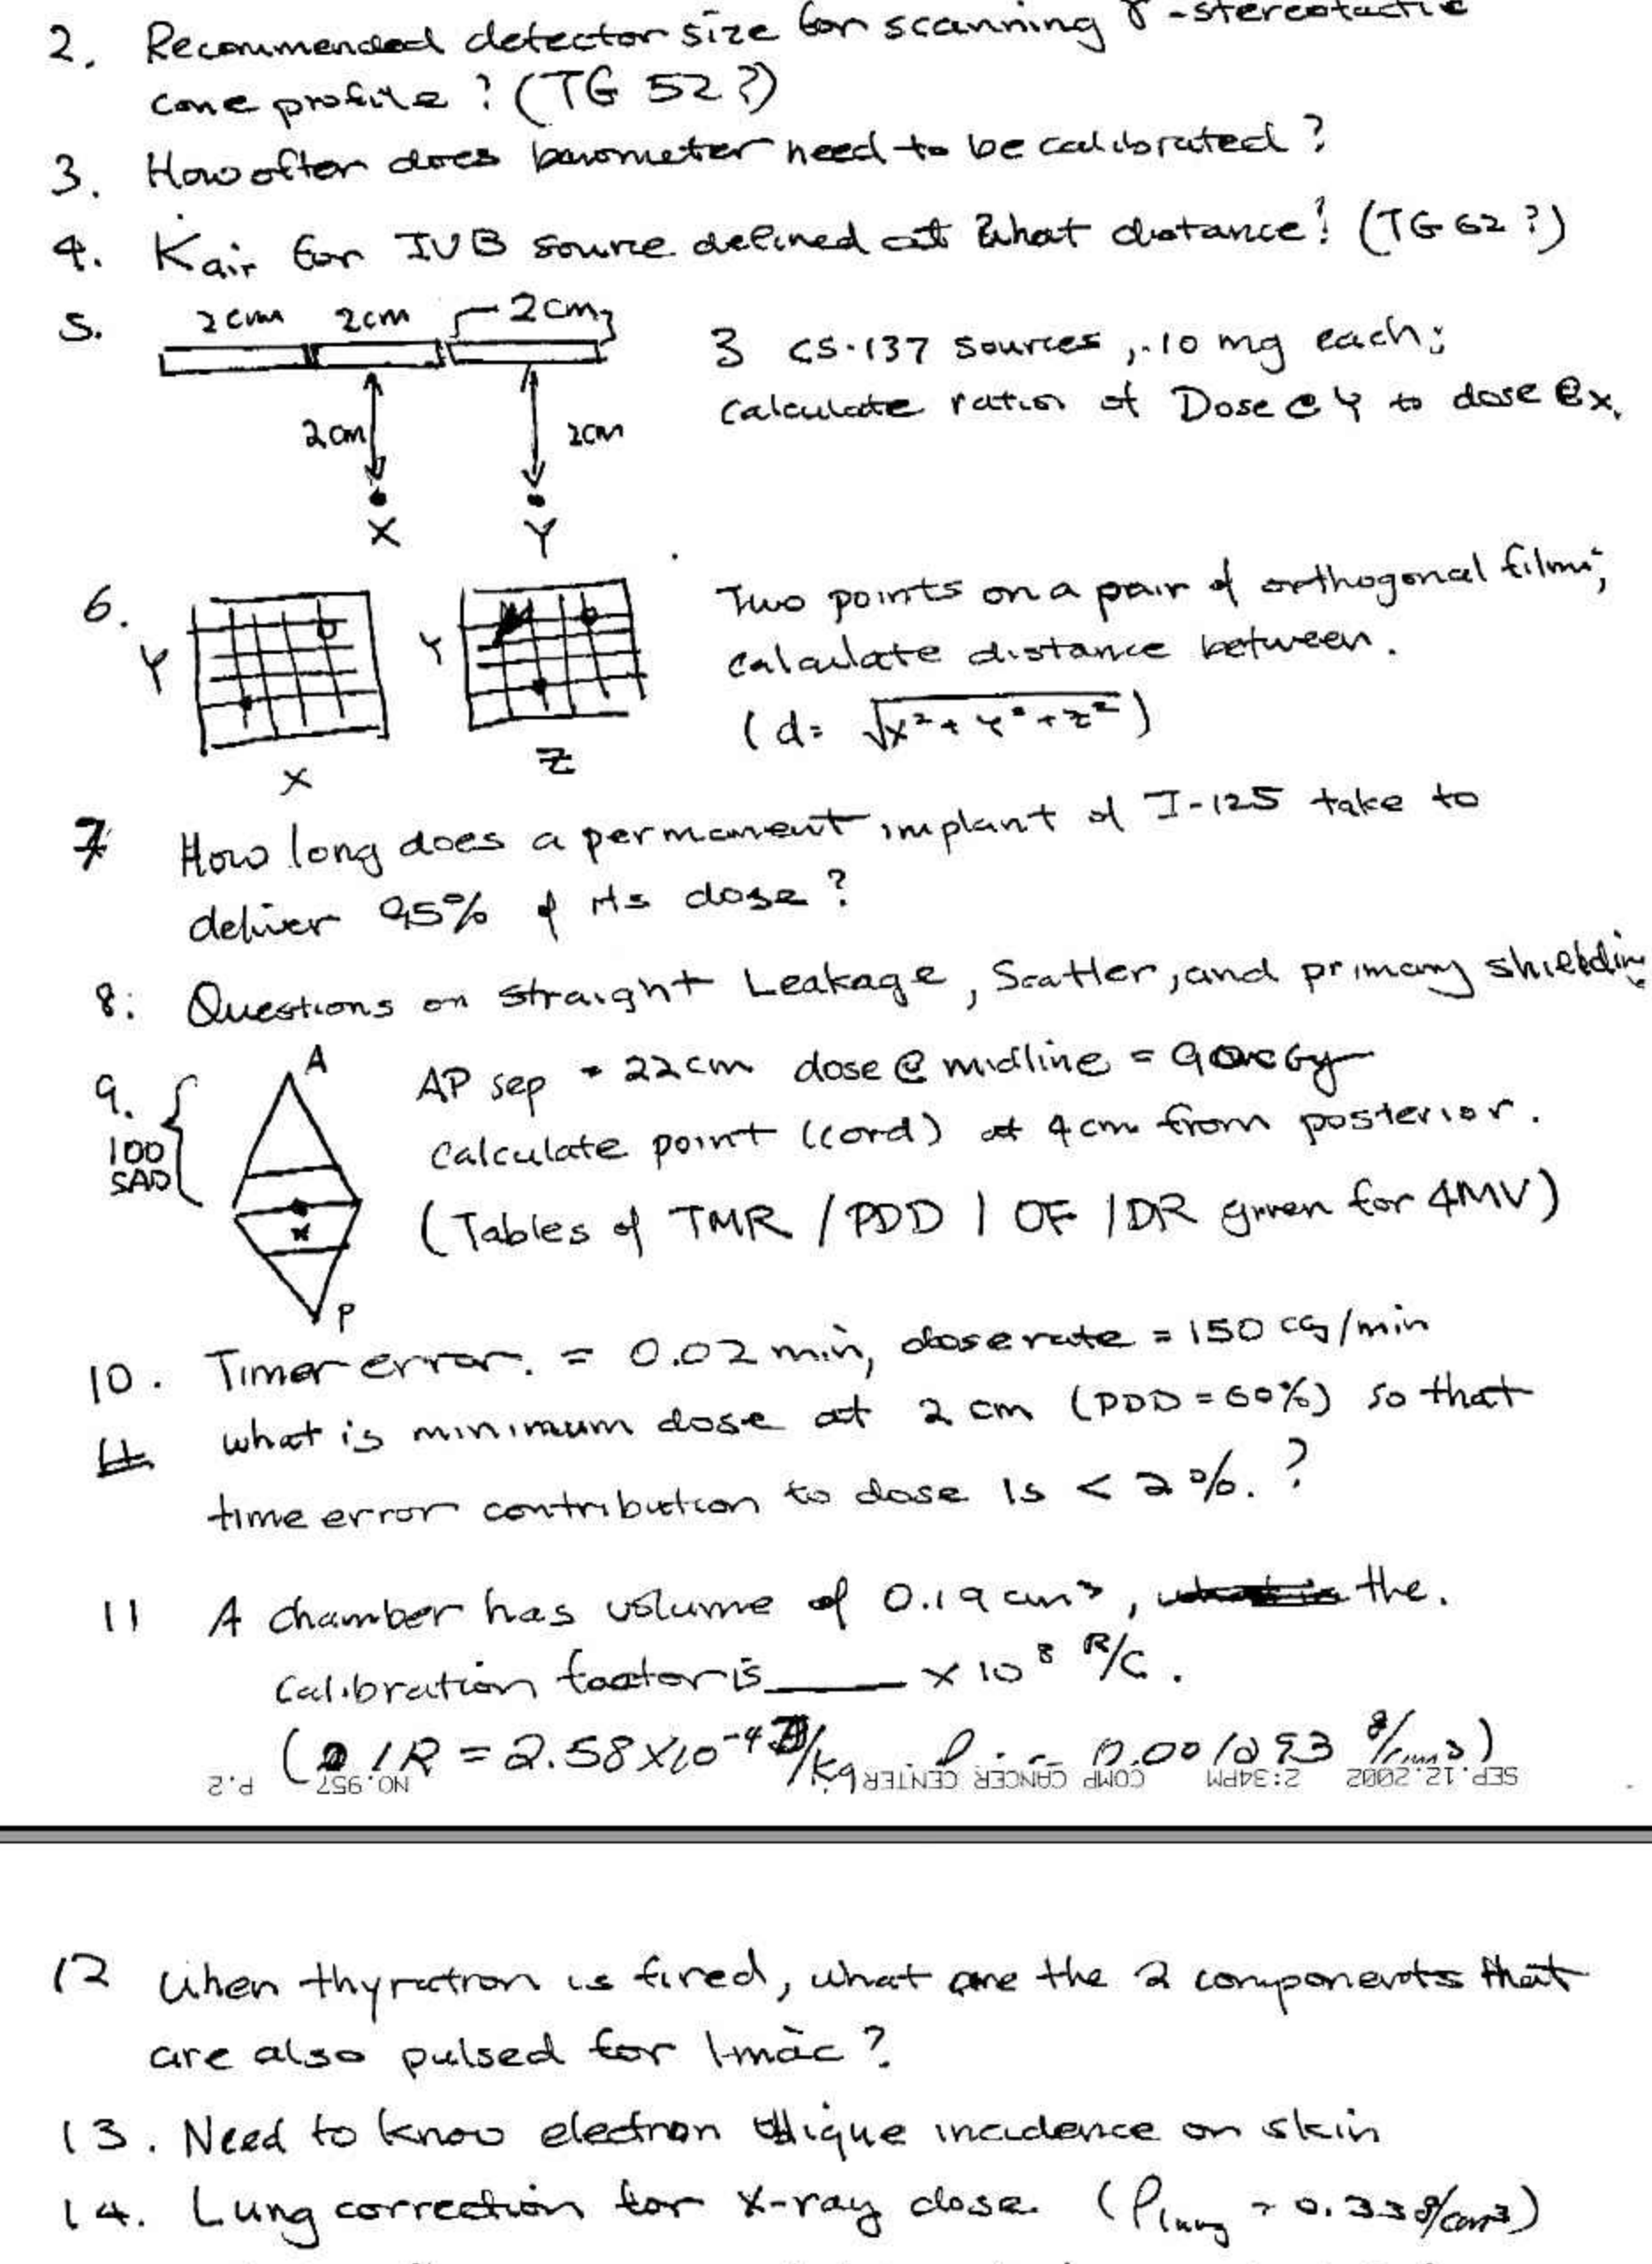 2. Recommended detector size for scanning γ-stereotactic
cone profile? (TG 52?)
3. How often does barometer need to be calibrated?
4. Kair for IVB source defined at what distance? (TG 62?)
5. 2cm 2cm 2cm
3 CS-137 sources, 10 mg each;
calculate ratio of Dose @ Y to dose @ x.
2cm 2cm
X Y
6. Y Y
Two points on a pair of orthogonal films;
calculate distance between.
(d= √x²+y²+z²)
X Z
7 How long does a permanent implant of I-125 take to
deliver 95% of its dose?
8. Questions on straight Leakage, Scatter, and primary shielding
9. 100 SAD A P x
AP sep = 22cm dose @ midline = 90cGy
Calculate point (cord) at 4cm from posterior.
(Tables of TMR / PDD / OF / DR given for 4MV)
10. Timer error. = 0.02 min, dose rate = 150 cG/min
what is minimum dose at 2 cm (PDD = 60%) so that
time error contribution to dose is < 2%.?
11 A chamber has volume of 0.19 cm³, the.
Calibration factor is ____ x 10⁸ R/C.
(1R = 2.58x10⁻⁴ /kg = 0.001293 g/cm³)
SEP.12.2002 2:34PM COMP CANCER CENTER NO.957 P.2
12 When thyratron is fired, what are the 2 components that
are also pulsed for linac?
13. Need to know electron oblique incidence on skin
14. Lung correction for x-ray dose. (ρlung = 0.33 g/cm³)